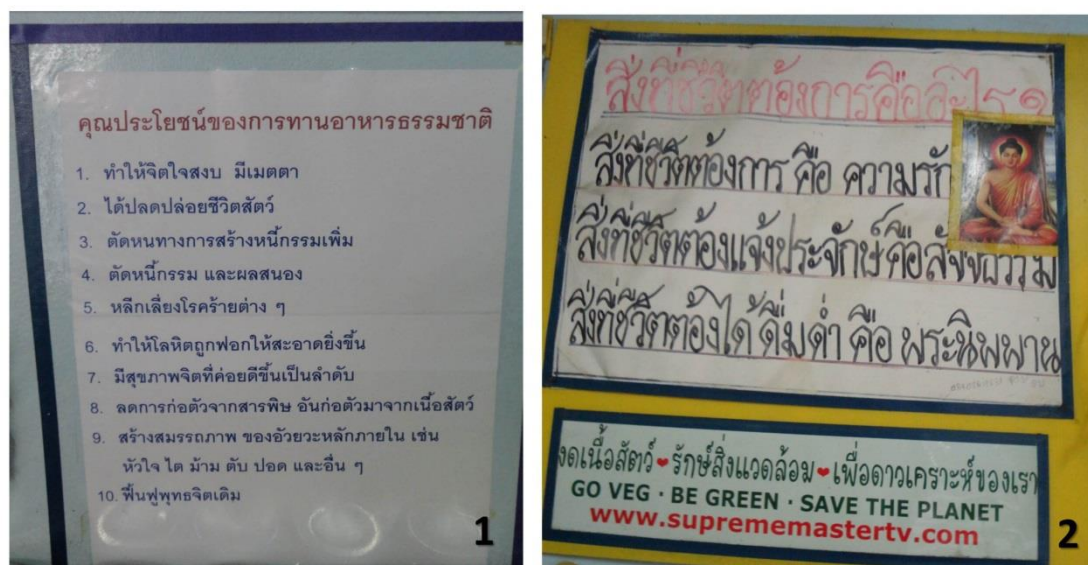 คุณประโยชน์ของการทานอาหารธรรมชาติ
1. ทำให้จิตใจสงบ มีเมตตา
2. ได้ปลดปล่อยชีวิตสัตว์
3. ตัดหนทางการสร้างหนี้กรรมเพิ่ม
4. ตัดหนี้กรรม และผลสนอง
5. หลีกเลี่ยงโรคร้ายต่าง ๆ
6. ทำให้โลหิตถูกฟอกให้สะอาดยิ่งขึ้น
7. มีสุขภาพจิตที่ค่อยดีขึ้นเป็นลำดับ
8. ลดการก่อตัวจากสารพิษ อันก่อตัวมาจากเนื้อสัตว์
9. สร้างสมรรถภาพ ของอัวยวะหลักภายใน เช่น
หัวใจ ไต ม้าม ตับ ปอด และอื่น ๆ
10. ฟื้นฟูพุทธจิตเดิม
1
สิ่งที่ชีวิตต้องการคืออะไร ?
สิ่งที่ชีวิตต้องการ คือ ความรัก
สิ่งที่ชีวิตต้องแจ้งประจักษ์คือสัจจธรรม
สิ่งที่ชีวิตต้องได้ดื่มด่ำ คือ พระนิพพาน
งดเนื้อสัตว์ ❤ รักษ์สิ่งแวดล้อม ❤ เพื่อดาวเคราะห์ของเรา
GO VEG · BE GREEN · SAVE THE PLANET
www.suprememastertv.com
2